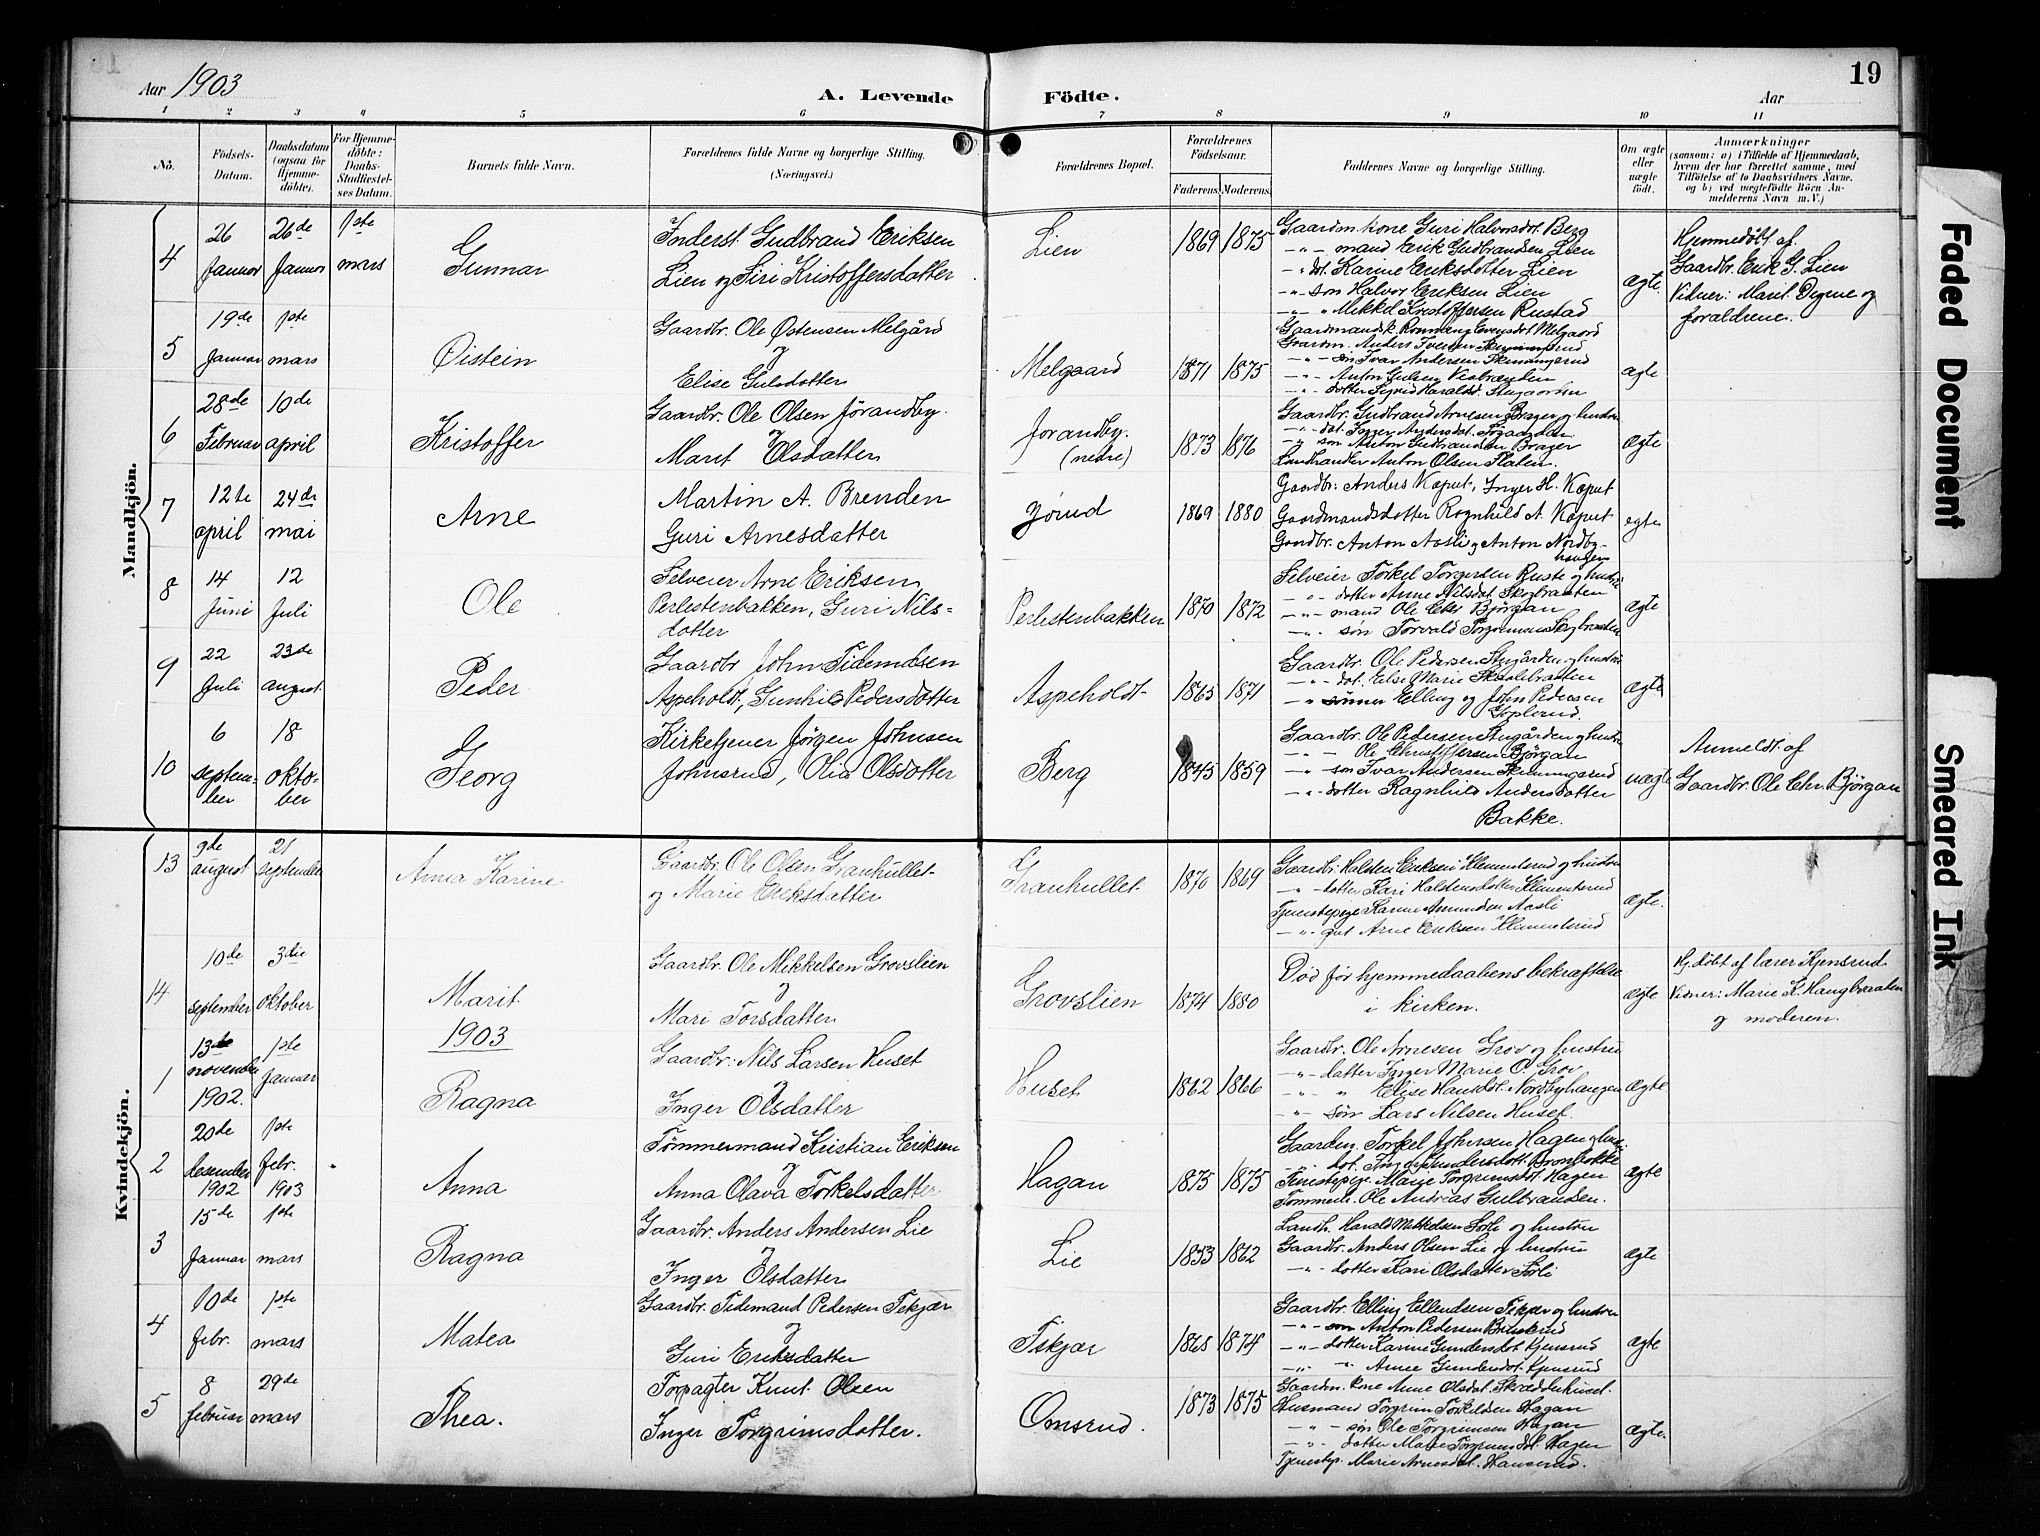 19
Aar 1903
A. Levende Födte.
Aar
1 2 3 4 5 6 7 8 9 10 11
No.
Födsels-Datum.
Daabsdatum (ogsaa for Hjemmedöbte).
For Hjemmedöbte: Daabs-Stadfæstelses Datum.
Barnets fulde Navn.
Forældrenes fulde Navne og borgerlige Stilling. (Næringsvei.)
Forældrenes Bopæl.
Forældrenes Födselsaar.
Faderens. Moderens.
Faddernes Navne og borgerlige Stilling.
Om ægte eller uægte födt.
Anmærkninger
(saasom: a) i Tilfælde af Hjemmedaab, hvem der har forrettet samme, med Tilföielse af to Daabsvidners Navne. og b) ved uægtefödte Börn Anmelderens Navn m. V.)
Mandkjön.
4
26 Januar
26de Januar
1ste mars
Gunnar
Inderst Gudbrand Eriksen
Lien og Siri Kristoffersdatter
Lien
1869 1875
Gaardm. kone Guri Halvorsdt. Berg
-"- mand Erik Gudbrandsen Lien
-"- dt. Karine Eriksdotter Lien
-"- søn Halvor Eriksen Lien
-"- " Mikkel Kristoffersen Rustad
ægte.
Hjemmedøbt af
Gaardbr. Erik G. Lien
Vidner: Marit Digrne og
forældrene.
5
19de Januar
1ste mars
Øistein
Gaardbr. Ole Østensen Melgård
og
Elise Gulsdotter
Melgaard
1871 1875
Gaardm. Anders Iversen
-"- søn Ivar Andersen
-"- Anton Gulsen
-"- dotter Sigrid Haraldsd.
ægte
6
28de Februar
10de april
Kristoffer
Gaardbr. Ole Olsen Jørandby.
og
Marit Olsdatter
Jørandby. (nedre)
1873 1876
Gaardbr. Gudbrand Arnesen Brager og hustru
-"- dot. Inger Andersdot.
-"- søn Anton Gudbrandsen Brager
Landhandler Anton Olsen Flaten.
ægte
7
12te april
24de mai
Arne
Martin A. Brenden
Guri Arnesdatter
Jørud
1869 1880
Gaardbr. Anders Kaput, Inger H. Kaput
Gaardmandsdotter Ragnhild A. Kaput
Gaardbr. Anton Aasli og Anton Nordbyhaugen
egte
8
14 Juni
12 Juli
Ole
Selveier Arne Eriksen
Perlestenbakken, Guri Nils-
dotter
Perlestenbakken
1870 1872
Selveier Torkel Torgersen Ruste og hustru
-"- dotter Anne Nilsdot. Skogbraaten
-"- mand Ole Chr. Bjørgan
-"- søn Torvald Torgrimsen Skogbraaten
ægte
9
22 Juli
23de august.
Peder
Gaardbr John Tidemdsen
Aspeholdt, Gunhild Pedersdotter
Aspeholdt
1865 1871
Gaardbr. Ole Pedersen Stugården og hustru
-"- dot. Else Marie
-"- sønner Elling og John Pedersen
Goplerud.
ægte
10
6 september
18 oktober
Georg
Kirketjener Jørgen Johnsen
Johnsrud, Olia Olsdotter
Berg
1845 1859
Gaardbr. Ole Pedersen Stugården og hustru
-"- Ole Christoffersen Bjørgan
-"- søn Ivar Andersen
-"- dotter Ragnhild Andersdotter
Bakke.
uægte
Anmeldt af
Gaardbr. Ole Chr. Bjørgan
Kvindekjön.
13
9de august
21 september
Anna Karine
Gaardbr. Ole Olsen Granhullet
og Marie Eriksdatter
Granhullet
1870 1869
Gaardbr. Halsten Eriksen Klemmetsrud og hustru
-"- dotter Kari Halstensdotter Klemmetsrud
Tjenestepige Karine Amundsen Aasli
-"- gut Arne Eriksen Klemmetsrud
ægte.
14
10de september
3die oktober
Marit
Gaardbr. Ole Mikkelsen Grovslien
og
Mari Torsdatter
Grovslien
1874 1880
Død før hjemmedaabens bekræftelse
i kirken.
ægte
Hj. døbt af lærer Kjensrud
Vidner: Marie K. Haugbraaten
og moderen.
1903
1
13de november 1902.
1ste Januar
Ragna
Gaardbr. Nils Larsen Huset
og
Inger Olsdatter
Huset
1862 1866
Gaardbr. Ole Arnesen Grov og hustru
-"- datter Inger Marie O. Grov
-"- " Elise Hansdt. Nordbyhaugen
-"- søn Lars Nilsen Huset.
ægte
2
20de desember 1902
1ste febr. 1903
Anna
Tømmermand Kristian Eriksen
og
Anna Olava Torkelsdatter
Hagan
1875 1875
Gaardm. Torkel Johnsen Hagen og hustru
-"- dot. Inger Gundersdott. Bronbakke
Tjenestepige Marie Torgrimsdot. Hagen
Tømmerm. Ole Andreas Gulbransen.
ægte
3
15de Januar
1ste mars
Ragna
Gaardbr. Anders Andersen Lie
og
Inger Olsdatter
Lie
1853 1862
Landh. Harald Mikkelsen Sørli og hustru
Gaardbr. Anders Olsen Lie og hustru
-"- dotter Kari Olsdatter Sørli
ægte
4
10de febr.
1ste mars
Matea
Gaardbr. Tidemand Pedersen Fiskjær
og
Guri Eriksdatter
Fiskjær
1868 1874
Gaardbr. Elling Ellendsen Fiskjær og hustru
-"- søn Anton Pedersen
-"- dotter Karine Gundersdot. Kjensrud
-"- " Anne Gundersdot. Kjensrud
ægte
5
8 februar
29de mars
Thea.
Forpagter Knut Olsen
Inger Torgrimsdotter.
Omsrud.
1873 1875
Gaardm. kone Anne Olsdat. Skrædderhuset
Husmand Torgrim Torkildsen Hagan
-"- søn Ole Torgrimsen Hagan
-"- dotter Marie Torgrimsdot. Hagen
Tjenestep. Marie Arnesdot. Hanserud.
ægte.
Faded Document
Smeared Ink